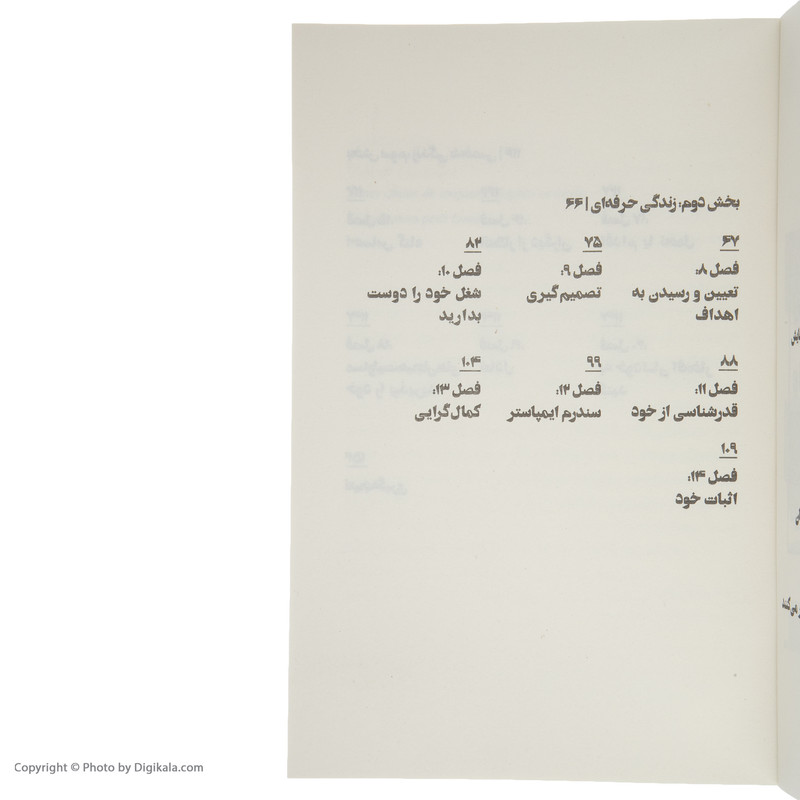 بخش دوم: زندگی حرفه‌ای | ۶۶
۶۷
فصل ۸:
تعیین و رسیدن به
اهداف
۷۵
فصل ۹:
تصمیم‌گیری
۸۲
فصل ۱۰:
شغل خود را دوست
بدارید
۸۸
فصل ۱۱:
قدرشناسی از خود
۹۹
فصل ۱۲:
سندرم ایمپاستر
۱۰۴
فصل ۱۳:
کمال‌گرایی
۱۰۹
فصل ۱۴:
اثبات خود
Copyright © Photo by Digikala.com